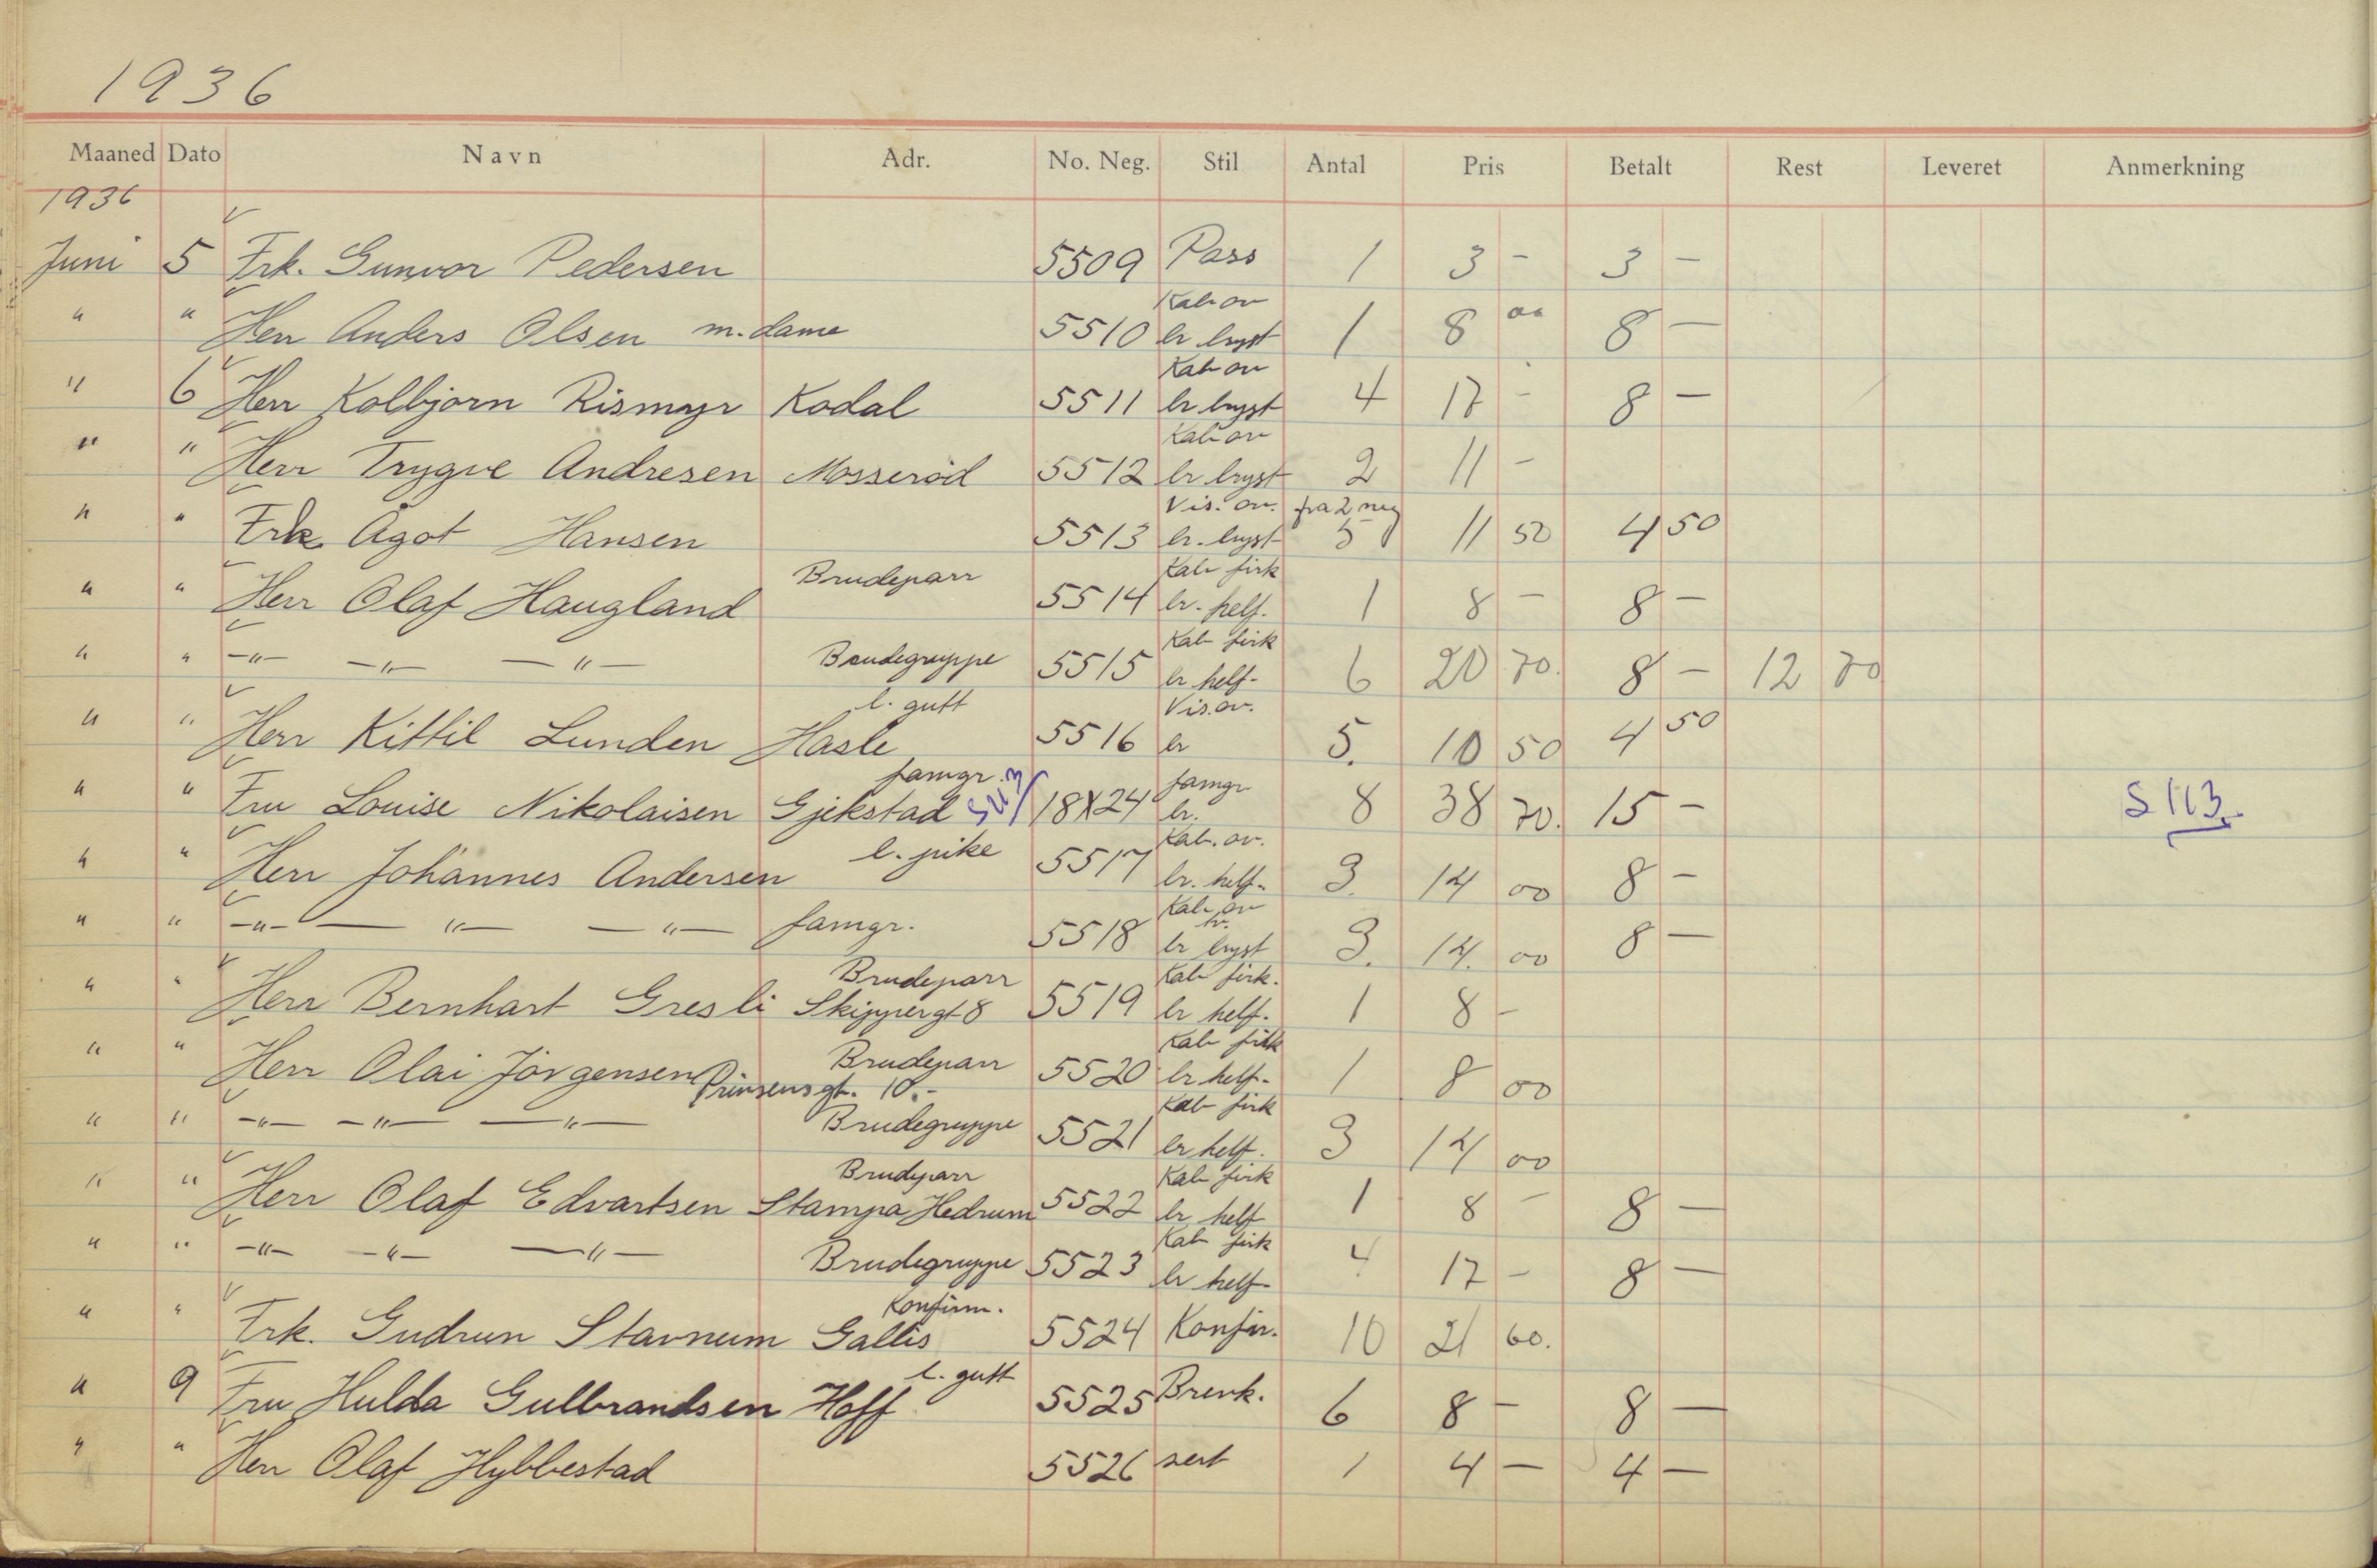 1936
Maaned Dato Navn Adr. No. Neg. Stil Antal Pris Betalt Rest Leveret Anmerkning
1936
Juni 5 Frk. Gunvor Pedersen 5509 Pass 1 3 - 3 -
Kab ov
" " Herr Anders Olsen m. dame 5510 br bryst 1 8 00 8 -
Kab ov
" 6 Herr Kolbjørn Rismyr Kodal 5511 br bryst 4 17 - 8 -
Kab ov
" " Herr Trygve Andresen Mosserød 5512 br bryst 2 11 -
Vis. ov. fra 2 neg
" " Frk Ågot Hansen 5513 br. bryst 5 11 50 4 50
Brudeparr Kab firk
" " Herr Olaf Haugland 5514 br. helf. 1 8 - 8 -
Kab firk
" " -"- -"- -"- Brudegruppe 5515 br helf. 6 20 70. 8 - 12 70
l. gutt Vis. ov.
" " Herr Kittil Lunden Hasle 5516 br 5. 10 50 4 50
famgr. famgr
" " Fru Louise Nikolaisen Gjekstad S113 18X24 br. 8 38 70. 15 - S 113.
l. pike Kab. ov.
" " Herr Johannes Andersen 5517 br. helf. 3. 14 00 8 -
Kab ov
" " -"- -"- -"- famgr. 5518 br bryst 3. 14. 00 8 -
Brudeparr Kab firk.
" " Herr Bernhart Gresli Skippergt 8 5519 br helf. 1 8 -
Brudeparr Kab firk
" " Herr Olai Jörgensen 5520 br helf. 1 8 00
Prinsensgt. 10.-
Kab firk
" " -"- -"- -"- Brudegruppe 5521 br helf. 3 14 00
Brudeparr Kab firk
" " Herr Olaf Edvartsen Stampa Hedrum 5522 br helf 1 8 - 8 -
Kab firk
" " -"- -"- -"- Brudegruppe 5523 br helf 4 17 - 8 -
Konfirm.
" " Frk. Gudrun Stavnum Gallis 5524 Konfir. 10 21 60.
l. gutt
" 9 Fru Hulda Gulbrandsen Hoff 5525 Brevk. 6 8 - 8 -
" " Herr Olaf Hybbestad 5526 sert 1 4 - 4 -